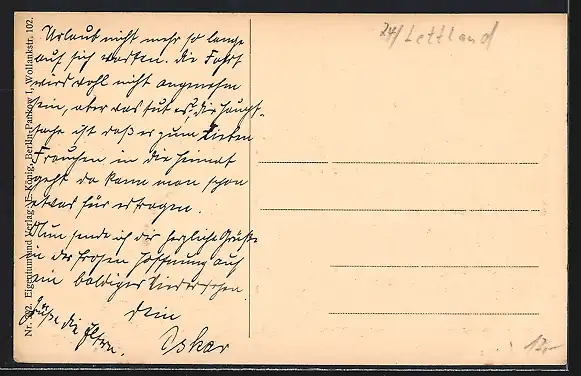 Urlaub nicht mehr so lange
auf sich warten. Die Fahrt
wird wohl nicht angenehm
sein, aber was tut es, die Haupt-
sache ist daß er zum lieben
Frauchen in die Heimat
geht da kann man schon
etwas für ertragen.
Nun sende ich dir herzliche Grüße
in der frohen Hoffnung auf
ein baldiges Wiedersehen
Dein
Oskar
Grüße die Eltern.
24/ Lettland
12,-
Nr. 292. Eigentum und Verlag König, Berlin-Pankow I, Wollankstr. 102.